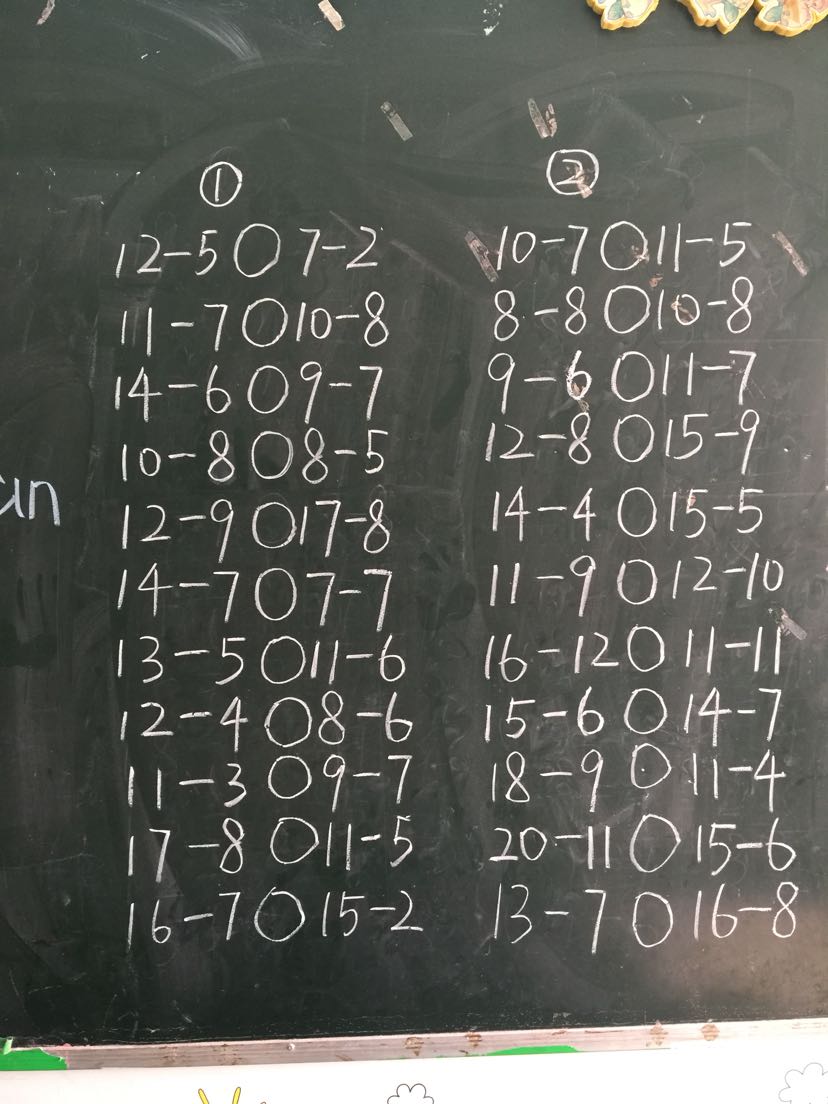 ①
12-5○7-2
11-7○10-8
14-6○9-7
10-8○8-5
12-9○17-8
14-7○7-7
13-5○11-6
12-4○8-6
11-3○9-7
17-8○11-5
16-7○15-2
②
10-7○11-5
8-8○10-8
9-6○11-7
12-8○15-9
14-4○15-5
11-9○12-10
16-12○11-11
15-6○14-7
18-9○11-4
20-11○15-6
13-7○16-8